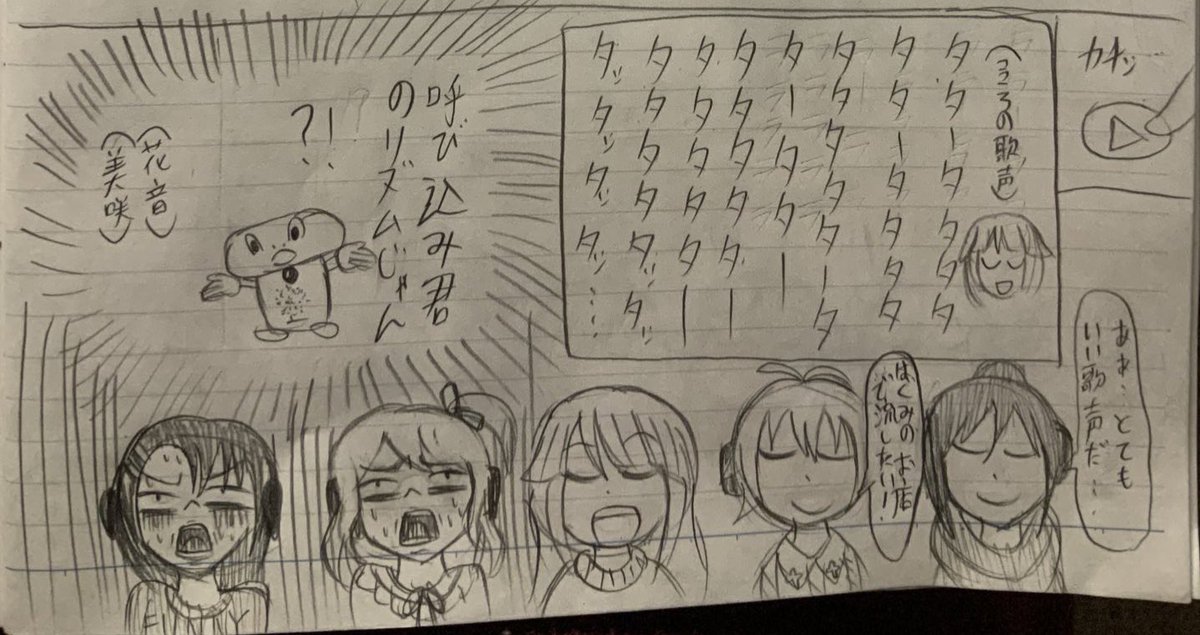 カチッ
ああ…とても
いい歌声だ……
(こころの歌声)
タタータタタタ
タタータタタ
タタタタタータ
タータター
タタタタター
タタタタター
タタタタタッタッ
タッタッタッタッ……
はぐみのお店
で流したい!
呼び込み君
のリズムじゃん
?!
(花音)
(美咲)
FUNNY